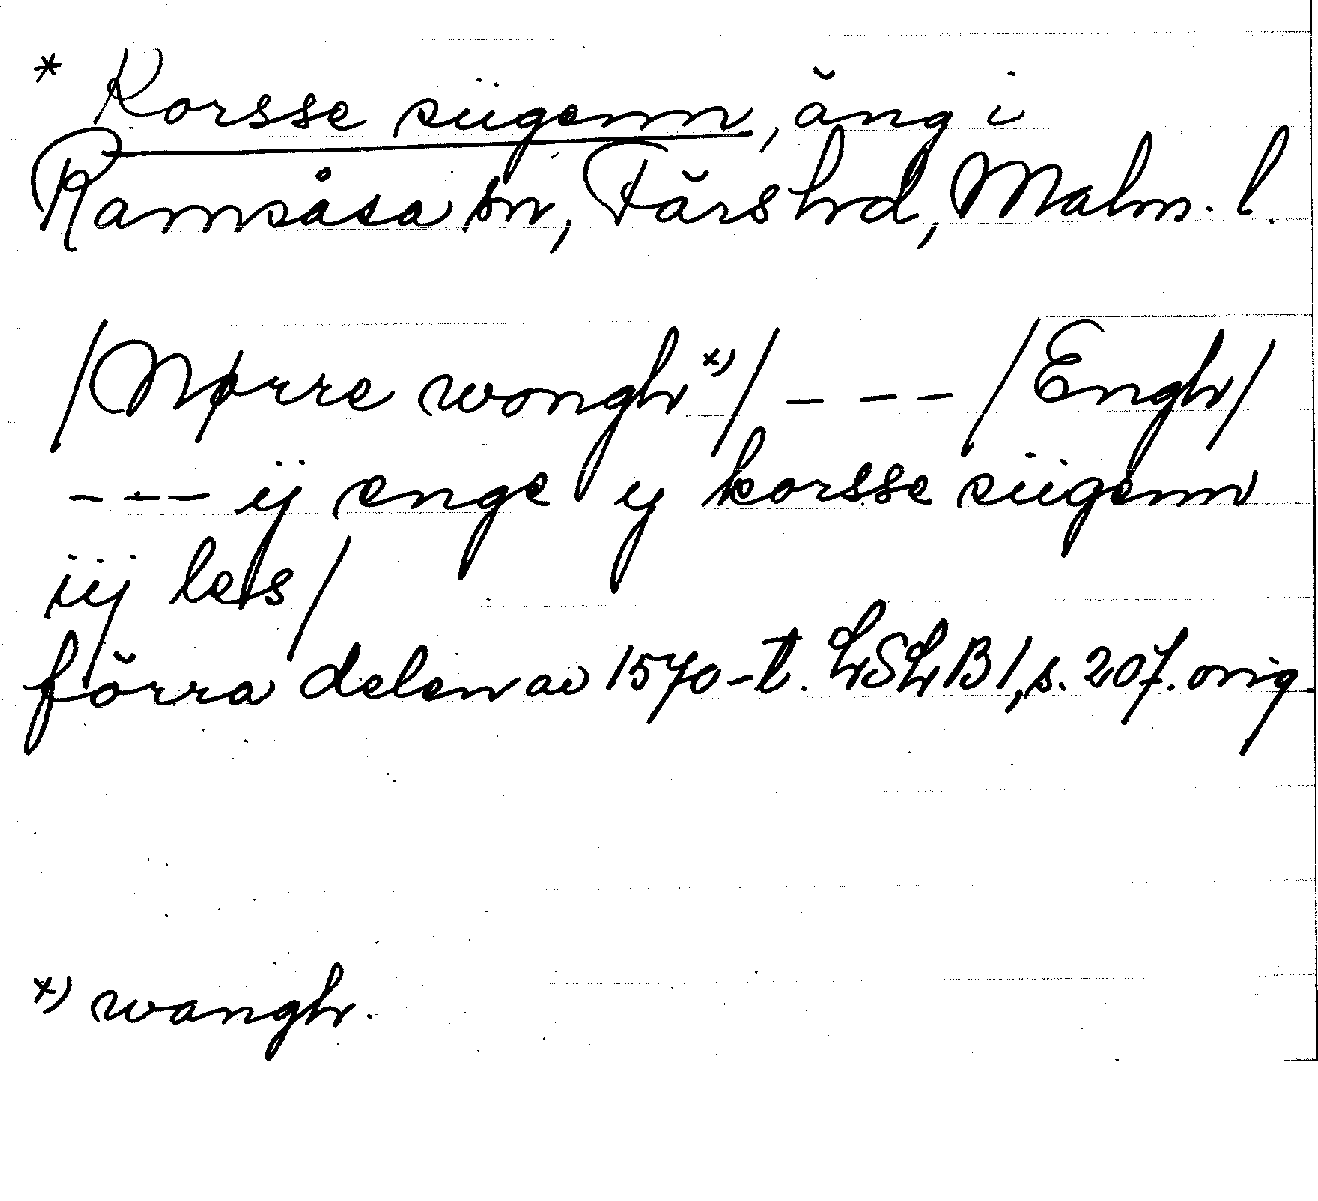 * Korsse siigenn, äng i
Ramsåsa sn, Färs hd, Malm. l.
/Nørre wongh *)/ – – – /Engh/
– – – ij enge y korsse siigenn
iij less/
förra delen av 1570-t. LSLB 1, s. 207. orig.
*) wangh.